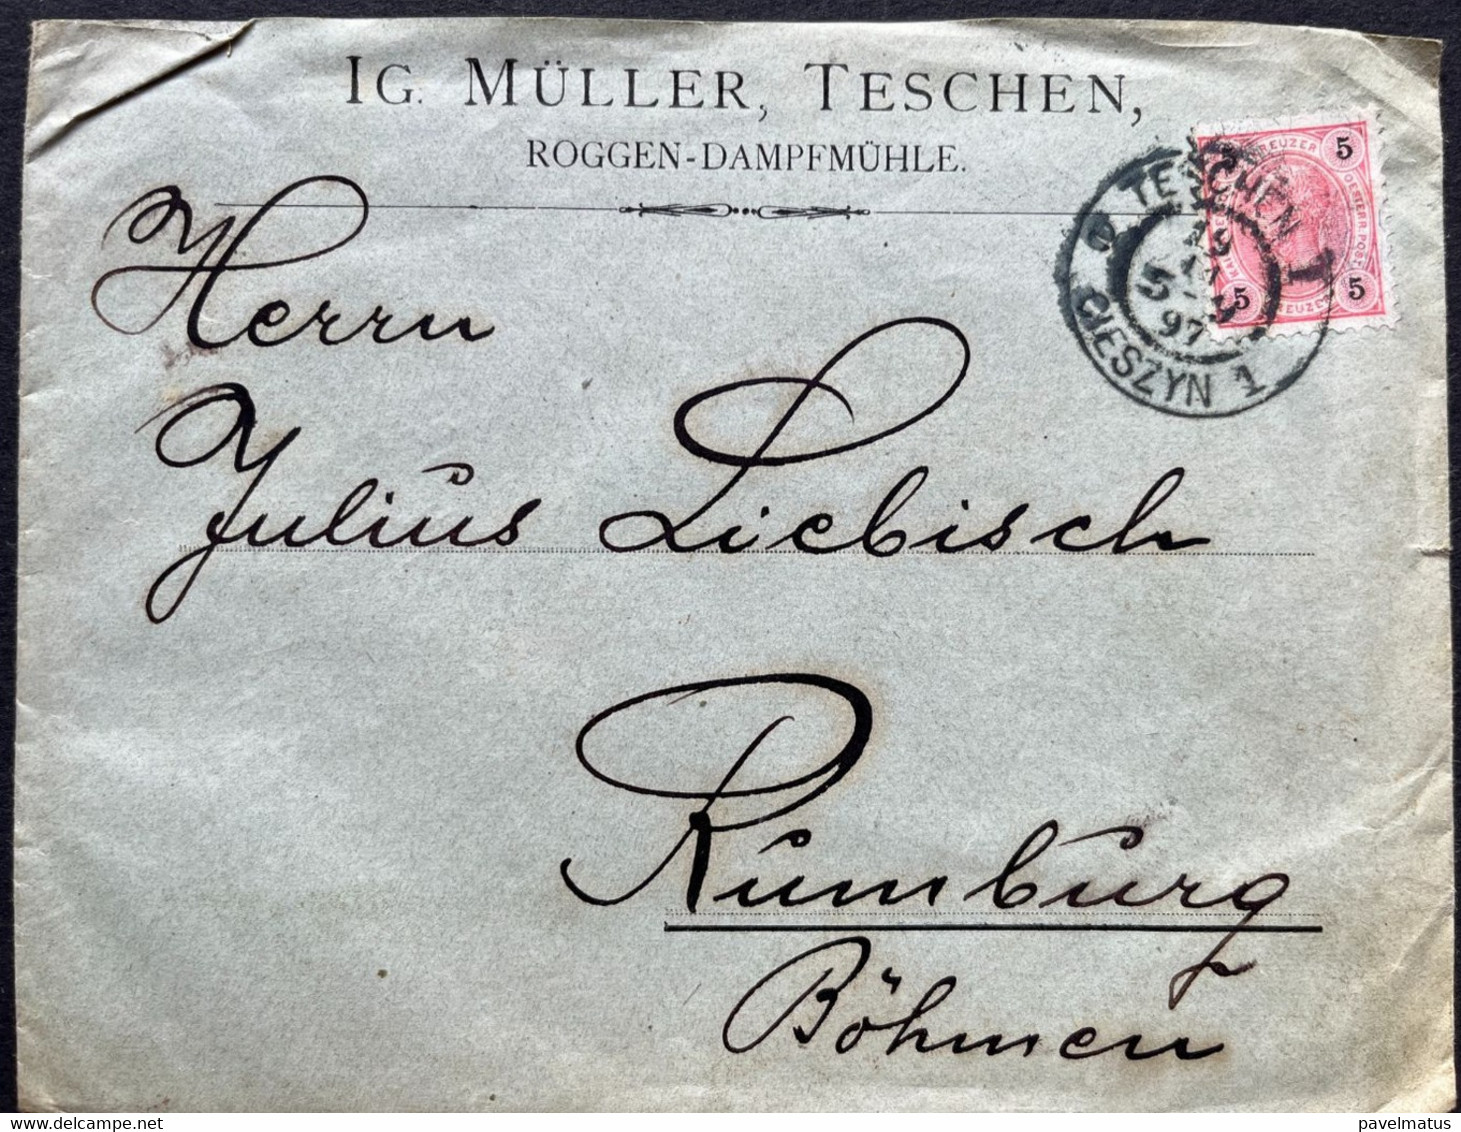 IG. MÜLLER, TESCHEN,
ROGGEN-DAMPFMÜHLE.
TESCHEN 1
19
11
97
CIESZYN 1
KREUZER
5
5
5
OESTERR. POST
KREUZER
Herrn
Julius Liebisch
Rumburg
Böhmen
delcampe.net
pavelmatus